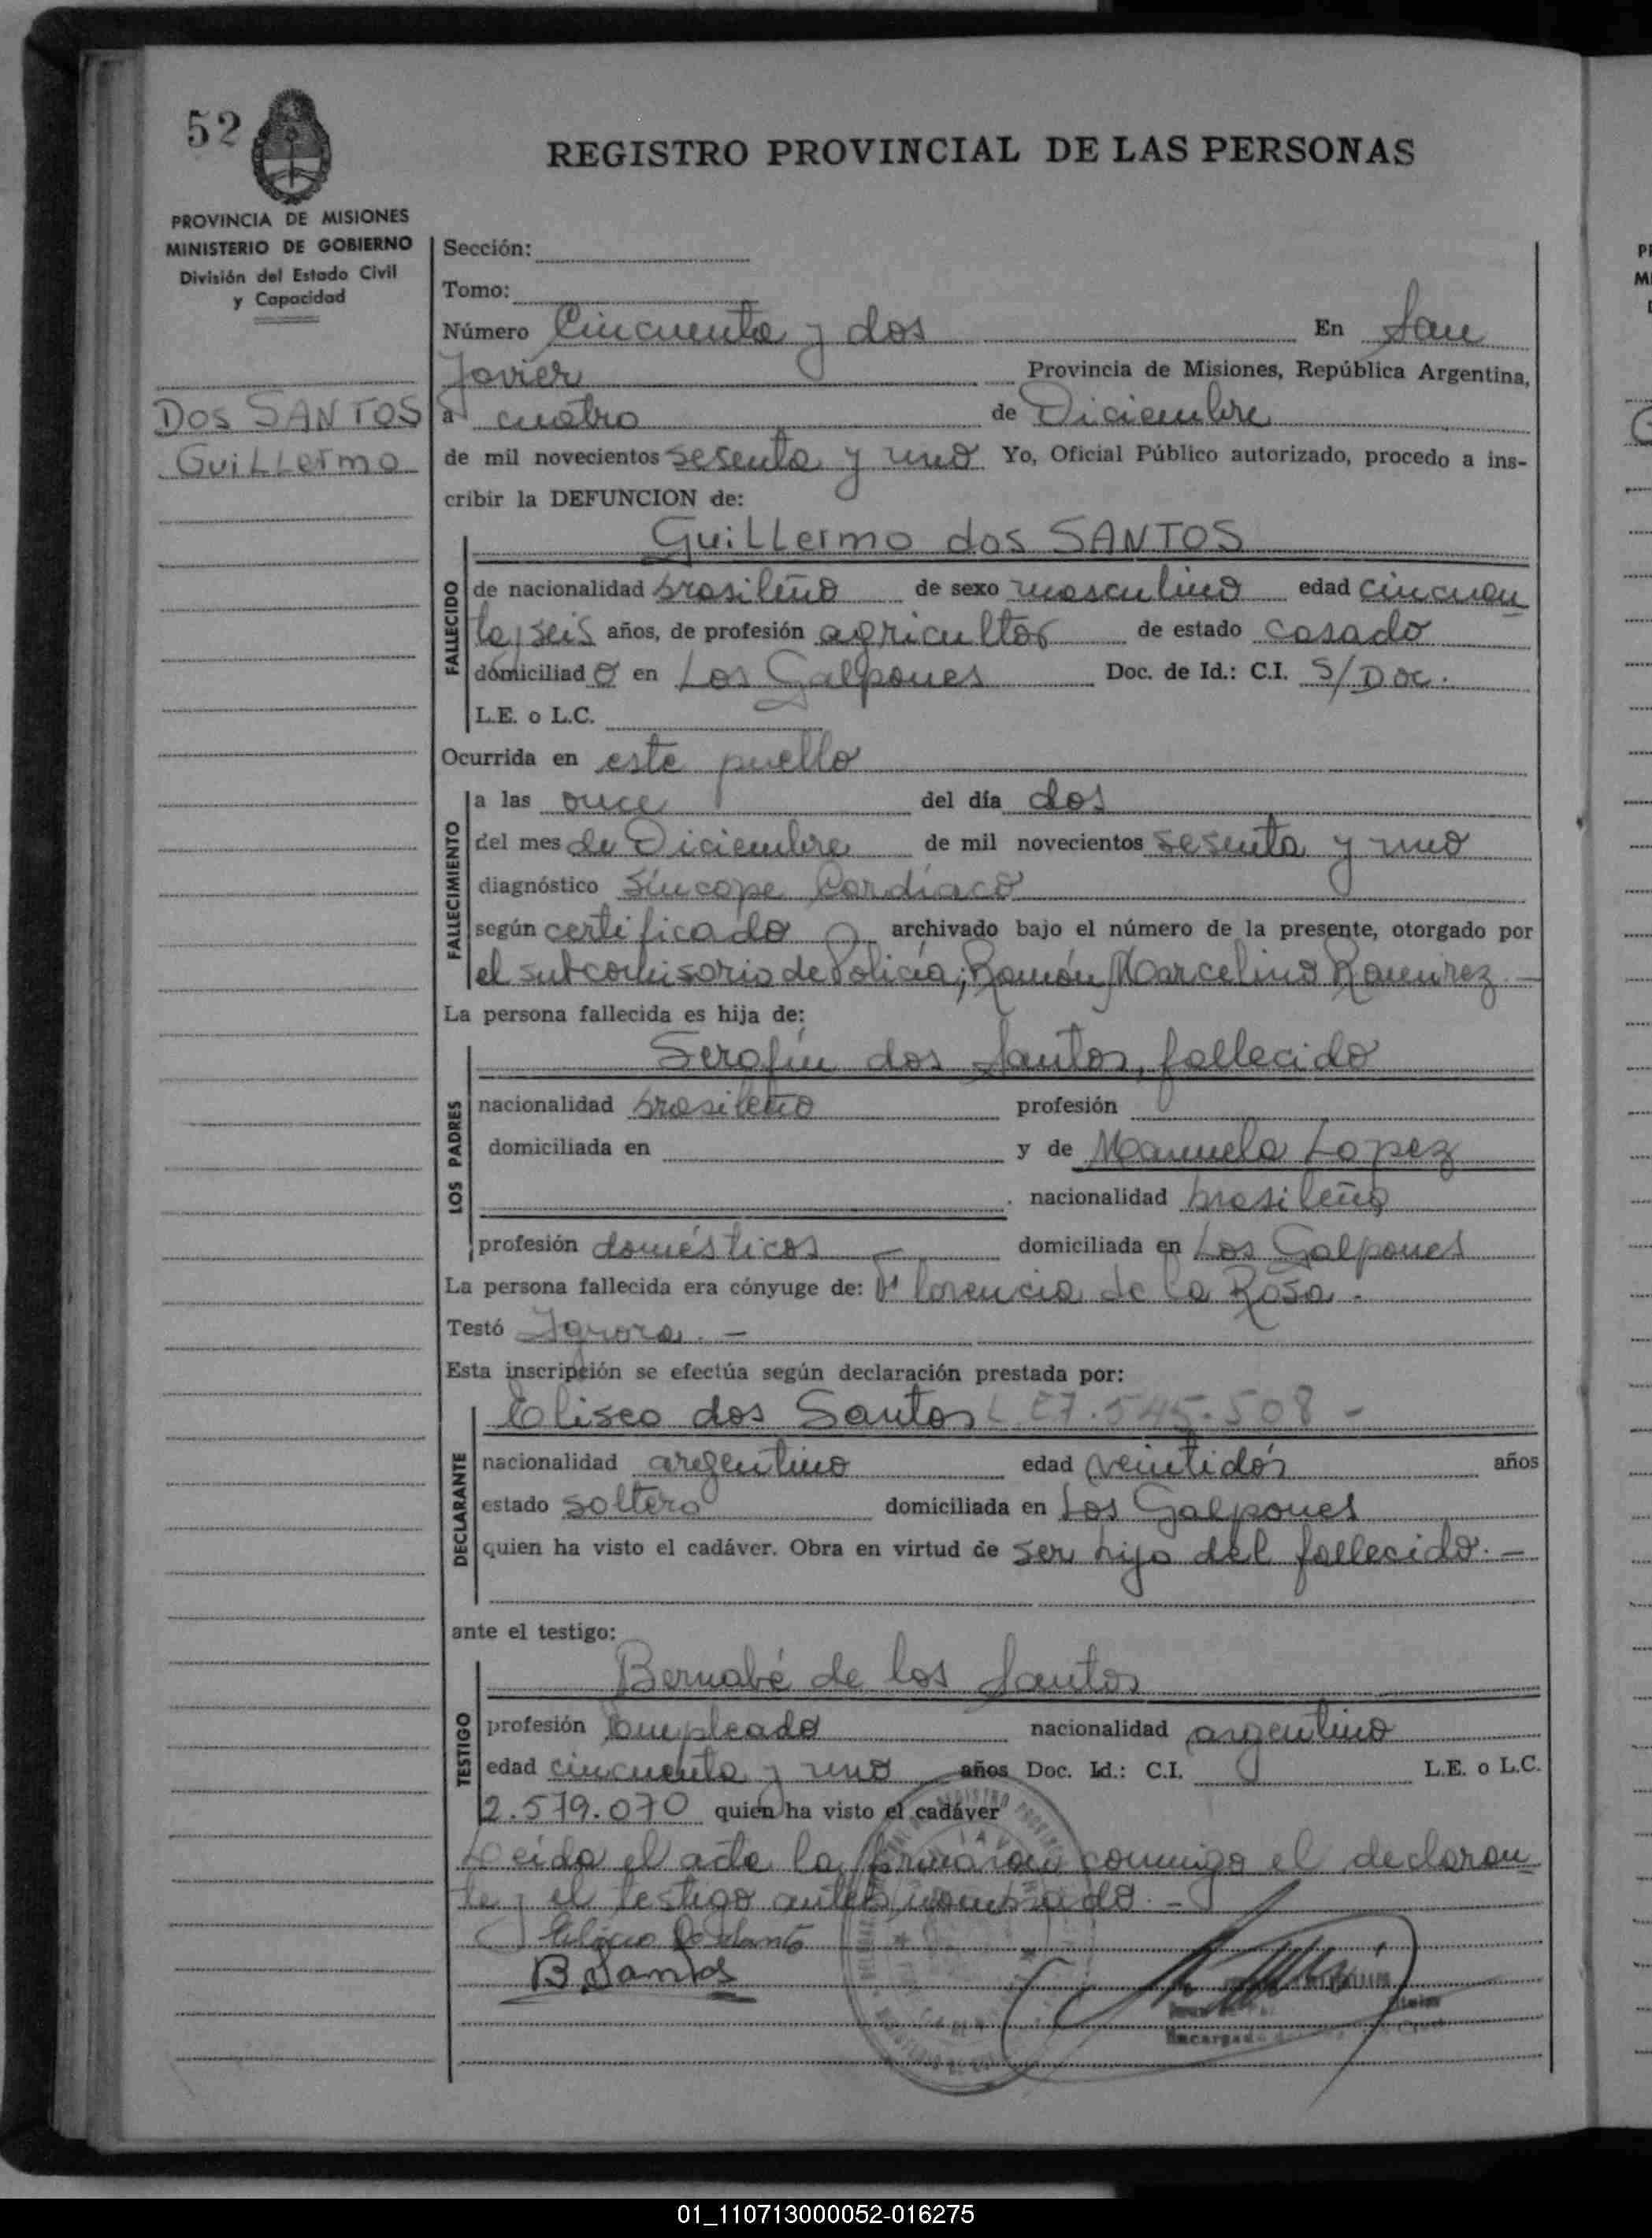 52
REGISTRO PROVINCIAL DE LAS PERSONAS
PROVINCIA DE MISIONES
MINISTERIO DE GOBIERNO
División del Estado Civil
y Capacidad
DOS SANTOS
Guillermo
Sección:
Tomo:
Número Cincuenta y dos En San
Javier Provincia de Misiones, República Argentina,
a cuatro de Diciembre
de mil novecientos sesenta y uno Yo, Oficial Público autorizado, procedo a ins-
cribir la DEFUNCION de:
Guillermo dos SANTOS
FALLECIDO
de nacionalidad brasileño de sexo masculino edad cincuen
ta y seis años, de profesión agricultor de estado casado
domiciliado en Los Galpones Doc. de Id.: C.I. S/Doc.
L.E. o L.C.
Ocurrida en este pueblo
FALLECIMIENTO
a las once del día dos
del mes de Diciembre de mil novecientos sesenta y uno
diagnóstico Síncope Cardíaco
según certificado archivado bajo el número de la presente, otorgado por
el subcomisario de Policía; Ramón Marcelino Ramirez. —
La persona fallecida es hija de:
LOS PADRES
Serafín dos Santos, fallecido
nacionalidad brasileño profesión
domiciliada en y de Manuela Lopez
nacionalidad brasileña
profesión domésticos — domiciliada en Los Galpones
La persona fallecida era cónyuge de: Florencia de la Rosa.
Testó Ignora. —
Esta inscripción se efectúa según declaración prestada por:
DECLARANTE
Eliseo dos Santos L.E 7.545.508 -
nacionalidad argentino edad veintidós años
estado soltero domiciliada en Los Galpones
quien ha visto el cadáver. Obra en virtud de ser hijo del fallecido. —
ante el testigo:
TESTIGO
Bernabé de los Santos
profesión Empleado nacionalidad argentino
edad cincuenta y uno años Doc. Id.: C.I. L.E. o L.C.
2.579.070 quien ha visto el cadáver
Leída el acta la firmaron conmigo el declaran
te y el testigo antes nombrado. -
B Santos
Encargado
01_110713000052-016275